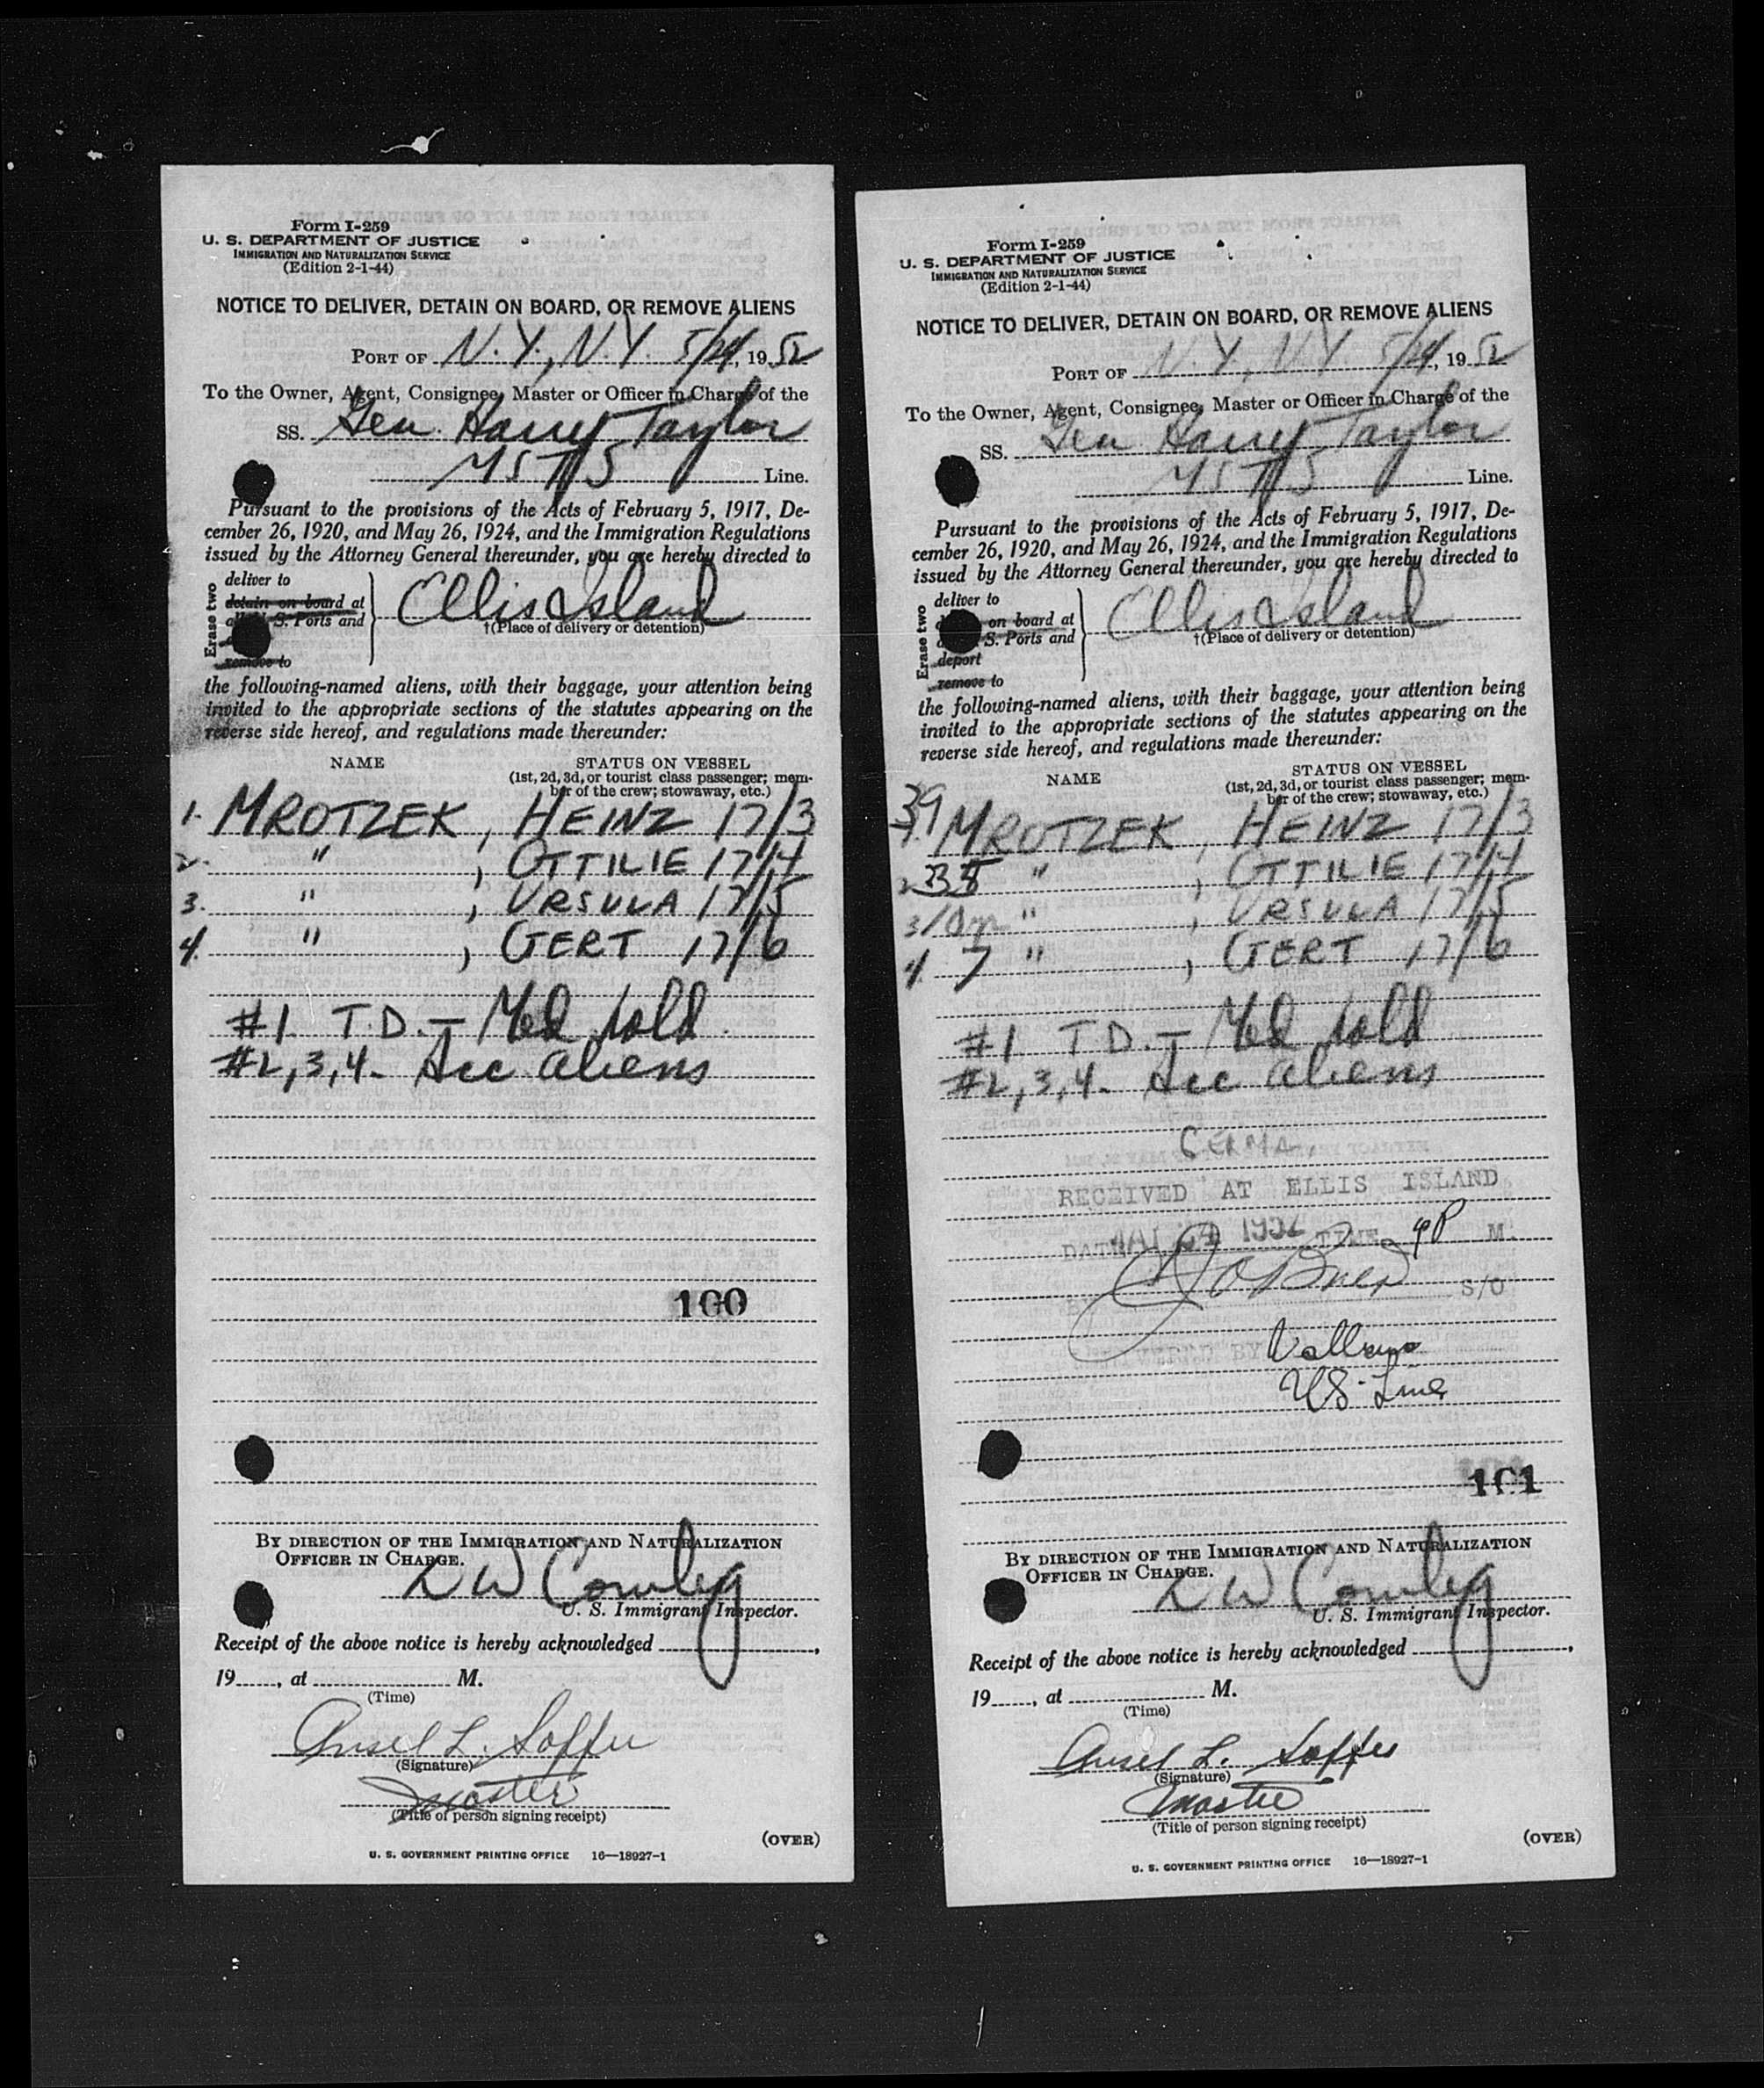 Form I-259
U. S. DEPARTMENT OF JUSTICE
IMMIGRATION AND NATURALIZATION SERVICE
(Edition 2-1-44)
NOTICE TO DELIVER, DETAIN ON BOARD, OR REMOVE ALIENS
PORT OF N.Y., N.Y. 5/24, 1952
To the Owner, Agent, Consignee, Master or Officer in Charge of the
SS. Gen. Harry Taylor
MSTS Line.
Pursuant to the provisions of the Acts of February 5, 1917, De-
cember 26, 1920, and May 26, 1924, and the Immigration Regulations
issued by the Attorney General thereunder, you are hereby directed to
Erase two
deliver to
detain on board at
S. Ports and
remove to
Ellis Island
†(Place of delivery or detention)
the following-named aliens, with their baggage, your attention being
invited to the appropriate sections of the statutes appearing on the
reverse side hereof, and regulations made thereunder:
NAME STATUS ON VESSEL
(1st, 2d, 3d, or tourist class passenger; mem-
ber of the crew; stowaway, etc.)
1. MROTZEK, HEINZ 17/3
2. " , OTTILIE 17/4
3. " , URSULA 17/5
4. " , GERT 17/6
#1. T.D. - Med Hold.
#2,3,4. Acc aliens
100
BY DIRECTION OF THE IMMIGRATION AND NATURALIZATION
OFFICER IN CHARGE.
U. S. Immigrant Inspector.
Receipt of the above notice is hereby acknowledged ,
19 , at M.
(Time)
Ansel L. Soffer
(Signature)
Master
(Title of person signing receipt)
(OVER)
U. S. GOVERNMENT PRINTING OFFICE 16—18927-1
Form I-259
U. S. DEPARTMENT OF JUSTICE
IMMIGRATION AND NATURALIZATION SERVICE
(Edition 2-1-44)
NOTICE TO DELIVER, DETAIN ON BOARD, OR REMOVE ALIENS
PORT OF N.Y., N.Y. 5/24, 1952
To the Owner, Agent, Consignee, Master or Officer in Charge of the
SS. Gen Harry Taylor
MSTS Line.
Pursuant to the provisions of the Acts of February 5, 1917, De-
cember 26, 1920, and May 26, 1924, and the Immigration Regulations
issued by the Attorney General thereunder, you are hereby directed to
Erase two
deliver to
on board at
S. Ports and
deport
remove to
Ellis Island
†(Place of delivery or detention)
the following-named aliens, with their baggage, your attention being
invited to the appropriate sections of the statutes appearing on the
reverse side hereof, and regulations made thereunder:
NAME STATUS ON VESSEL
(1st, 2d, 3d, or tourist class passenger; mem-
ber of the crew; stowaway, etc.)
39
1. MROTZEK, HEINZ 17/3
2. " , OTTILIE 17/4
3/10m " , URSULA 17/5
4. 7 " , GERT 17/6
#1 T.D. - Med Hold
#2,3,4. Acc aliens
RECEIVED AT ELLIS ISLAND
DATE MAY 24 1952 TIME 9P M.
BY S/O
BY
US Lines
101
BY DIRECTION OF THE IMMIGRATION AND NATURALIZATION
OFFICER IN CHARGE.
U. S. Immigrant Inspector.
Receipt of the above notice is hereby acknowledged ,
19 , at M.
(Time)
Ansel L. Soffer
(Signature)
Master
(Title of person signing receipt)
(OVER)
U. S. GOVERNMENT PRINTING OFFICE 16—18927-1